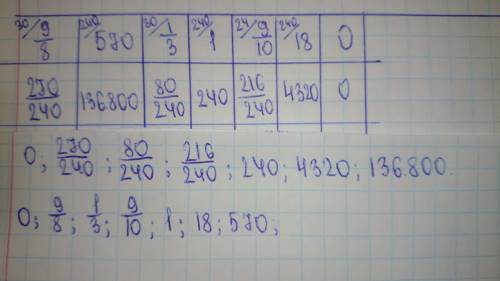 30/ 9/8 240/ 570 80/ 1/3 240/ 1 24/ 9/10 240/ 18 0
270/240 136800 80/240 240 216/240 4320 0
0; 270/240; 80/240; 216/240; 240; 4320; 136.800.
0; 9/8; 1/3; 9/10; 1; 18; 570;